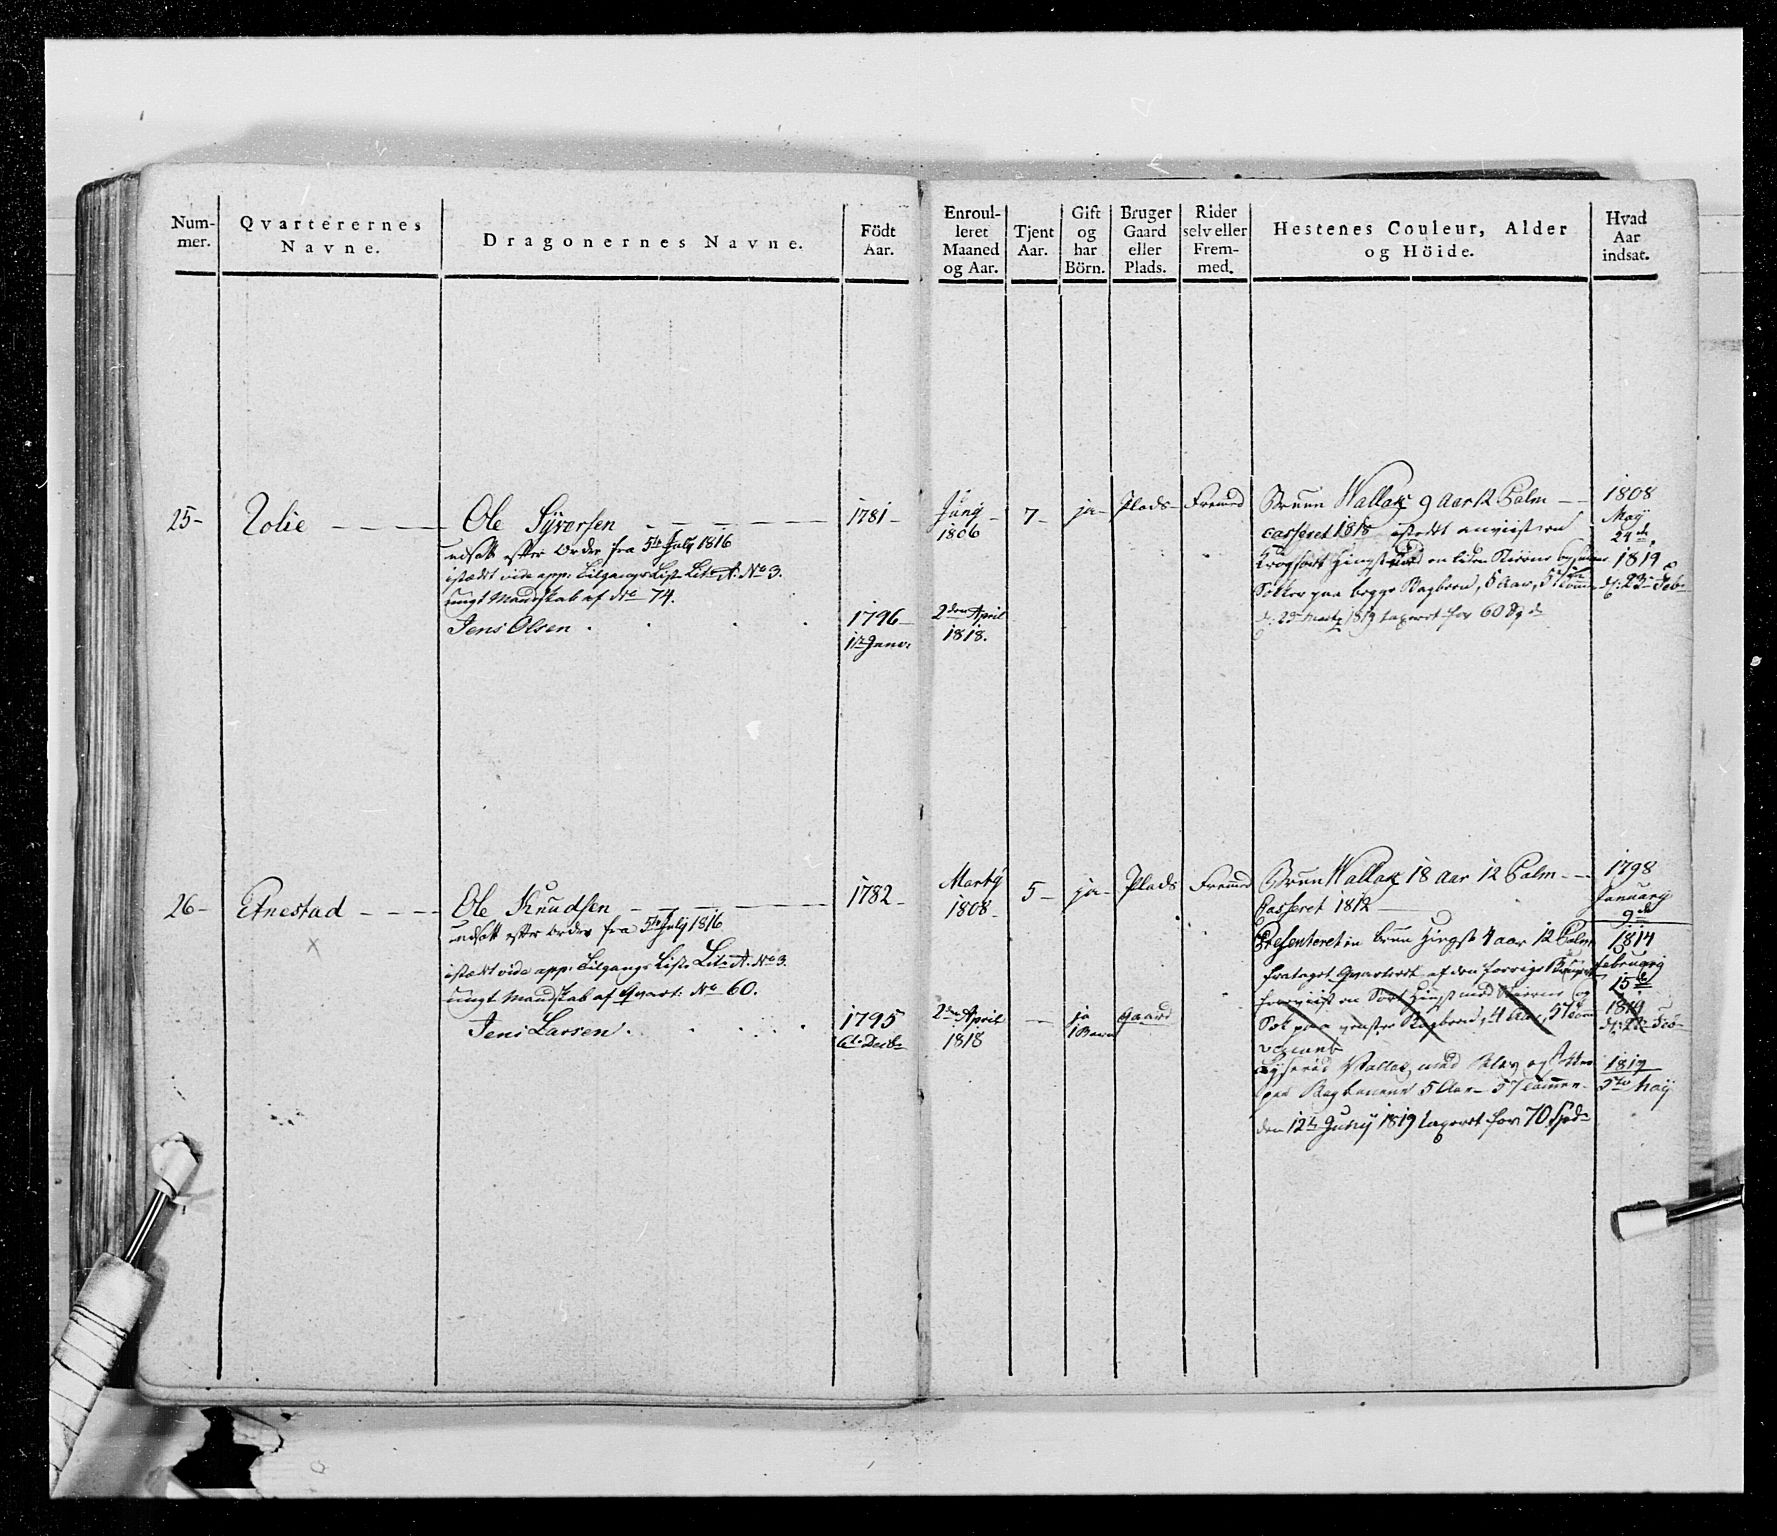 Num-
mer.
Qvarterernes
Navne.
Dragonernes Navne.
Födt
Aar.
Enroul-
leret
Maaned
og Aar.
Tjent
Aar.
Gift
og
har
Börn.
Bruger
Gaard
eller
Plads.
Rider
selv eller
Frem-
med.
Hestenes Couleur, Alder
og Höide.
Hvad
Aar
indsat.
25-
Ole Syversen
udsatt efter Order fra 5te July 1816
istædet vide app: Tilgangs Liste Litr A. No 3.
ungt Mandskab af No 74.
Jens Olsen
1781-
1796-
1te Janv:
Juny
1806
2den April
1818.
7-
ja-
Plads-
Fremed
Bruun Wallak 9 Aar 12 Palm
casseret 1818 istedet anviist en
Hingst
paa begge Bagbeen, 5 Aar,
d: 23de Martz 1819 taxeret for 60 Spd
1808
May
24de
1819
d: 23de Feb
26-
Etnestad
Ole Knudsen
udsatt efter Order fra 5te July 1816
istædet vide app: Tilgangs Liste Litr A. No 3.
ungt Mandskab af Qvart: No 60.
Jens Larsen
1782-
1795
6te Decbr
Marty
1808-
2den April
1818
5-
ja-
ja
1 Barn
Plads
Gaard
Fremed
Bruun Wallak 18 Aar 12 Palm
Casseret 1812
Presenteret en bruun Hingst 4 aar 12 Palm
frataget Qvarteret af den forrige
en Sort Hingst med Stierne og
Sok paa venstre Bagbeen, 4 Aar,
Wallak med og
paa Bagbenene 5 Aar
den 12te Juny 1819 taxeret for 70 Spd
1798
January
9de
1814
February
15de
1819
d: 23de Feb
1819
5te May